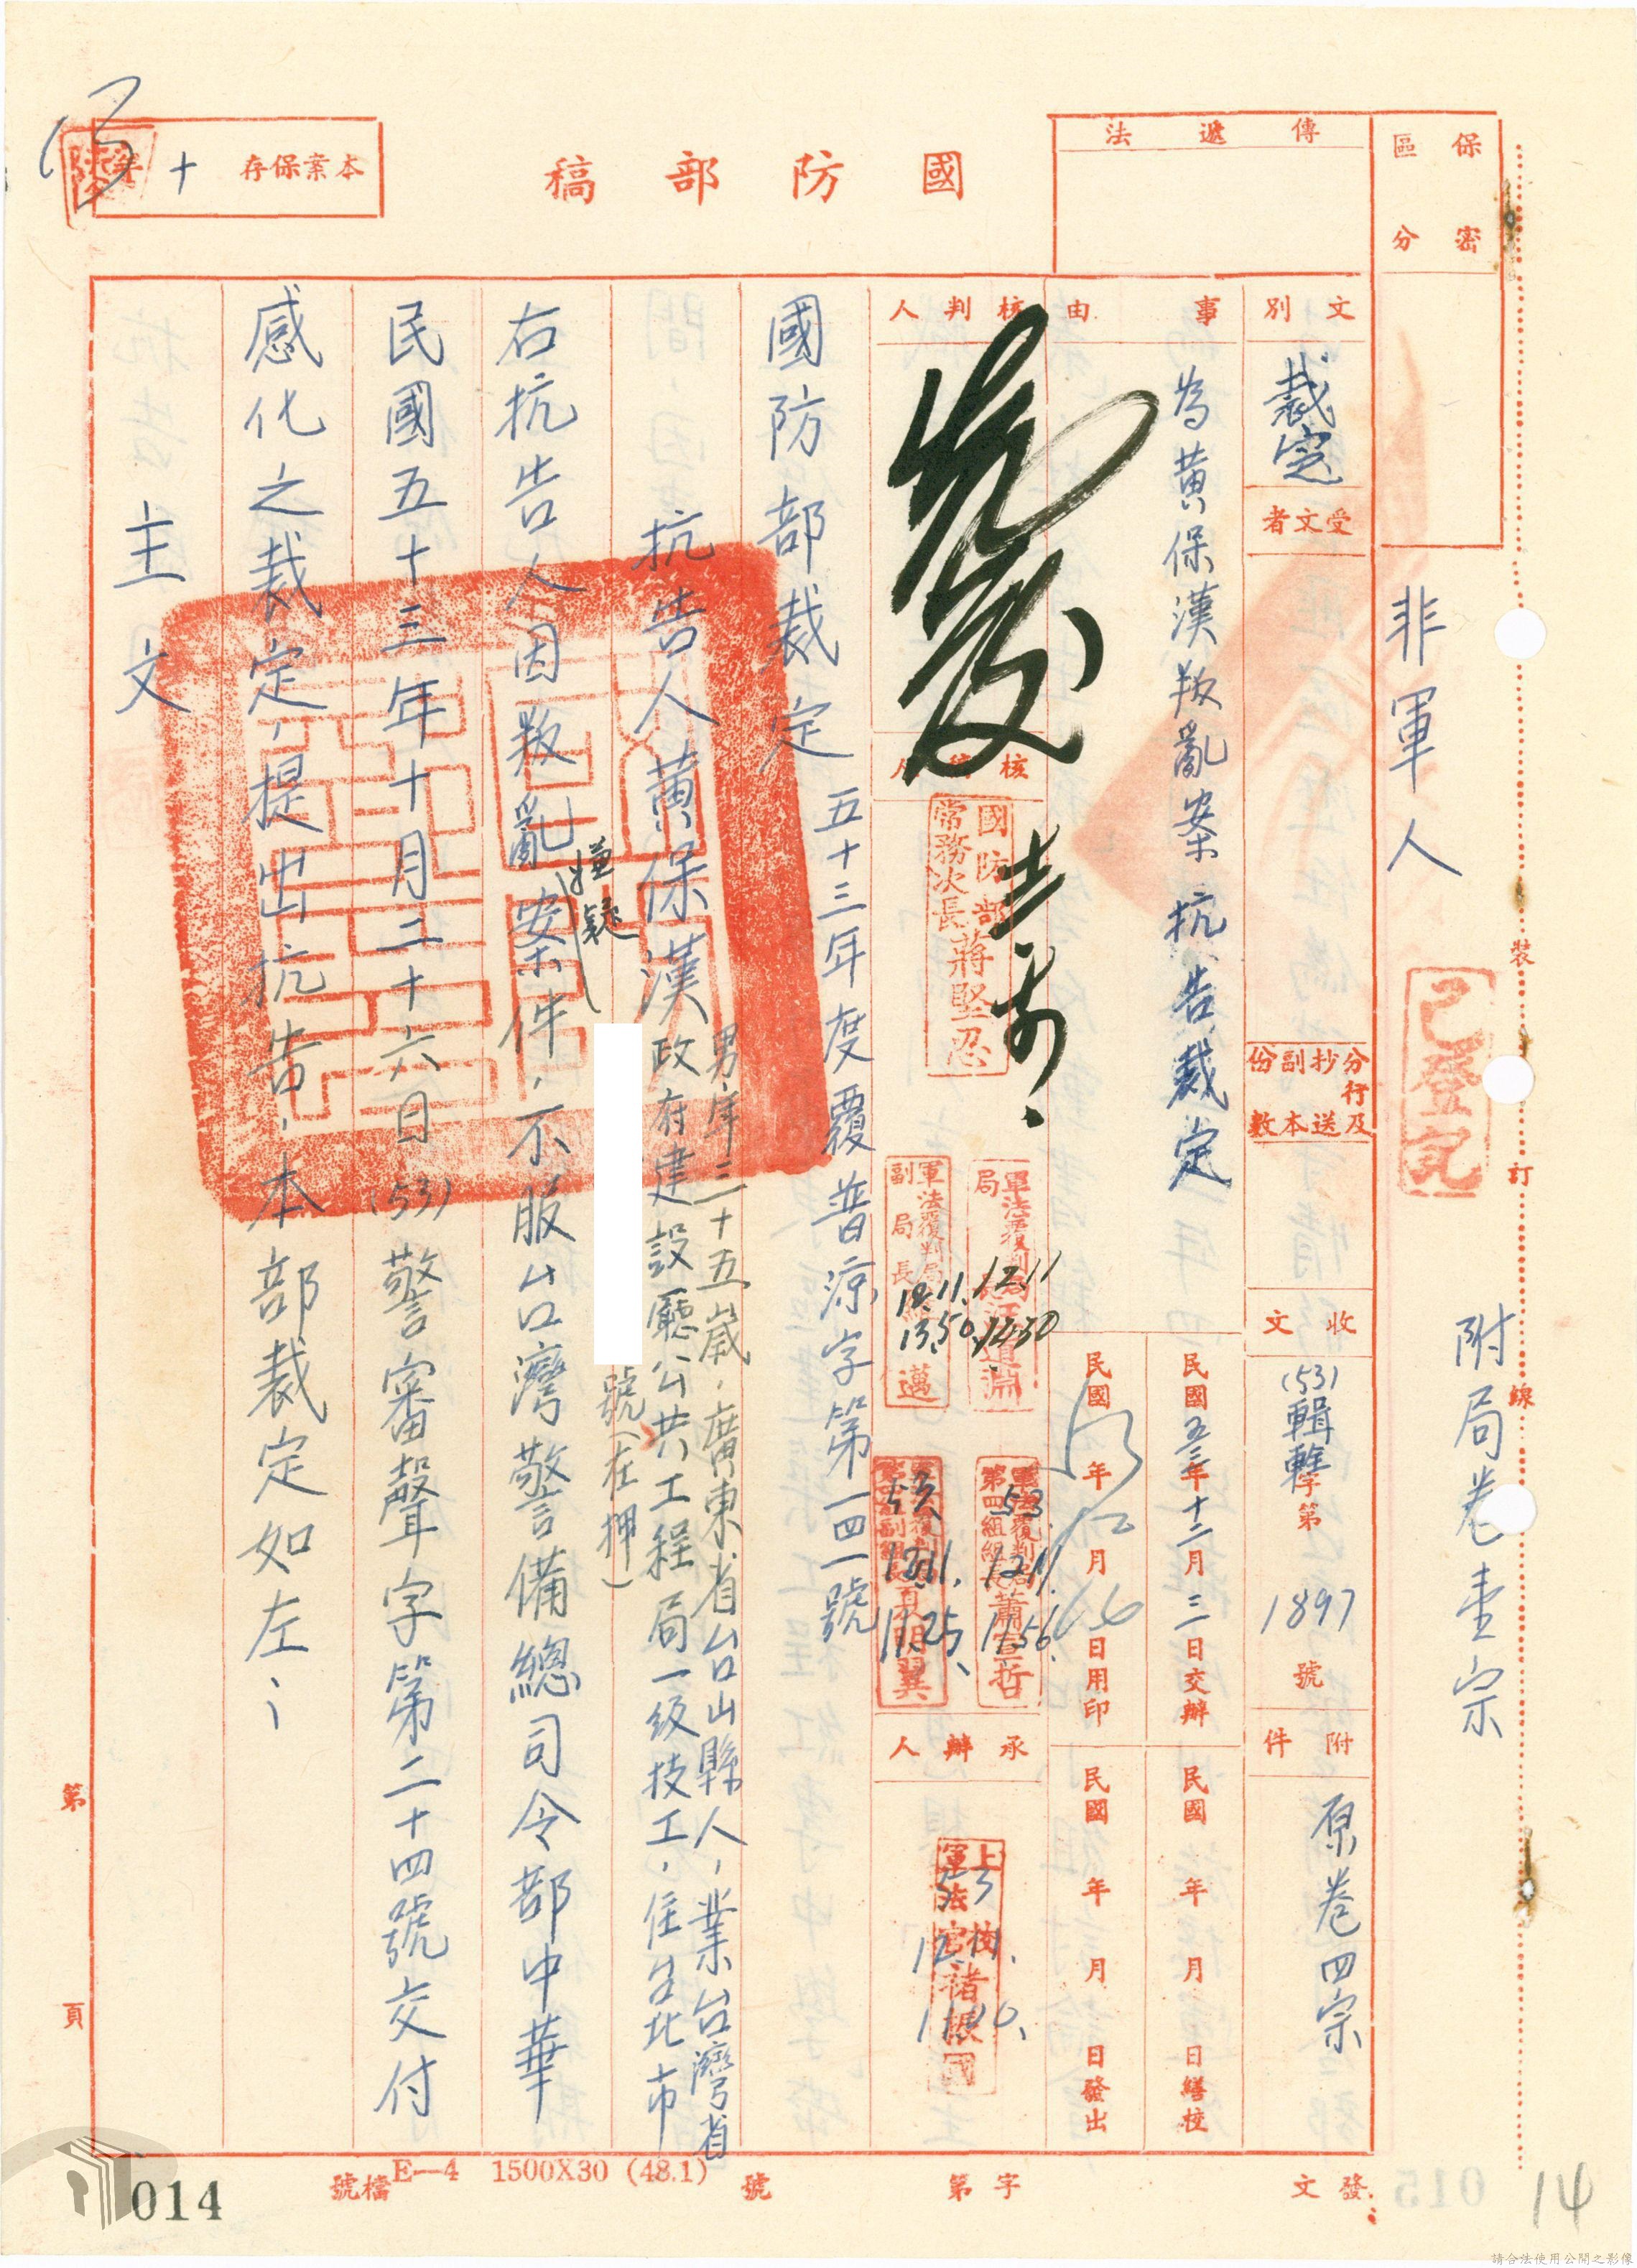 保密區分
傳遞法
國防部稿
本案保存
十
年
非軍人
附局卷壹宗
已登記
裝
訂
線
文別
裁定
受文者
分行及抄送副本份數
收文
(53)
字第
1897
號
附件
原卷四宗
事由
為黃保漢叛亂案抗告裁定
民國五三年十二月三日交辦
民國 年 月 日繕校
民國 年 12月16日用印
民國 年 月 日發出
核判人
核稿人
國防部常務次長蔣堅忍
軍法覆判局
12.11
1430
軍法覆判局副局長
12.11.
13.50
第四組組長蕭宣哲
53
12.11
11.56.
12.11.
11.25.
承辦人
上校軍法官褚振國
53
12.11.
國防部裁定
五十三年度覆普涼字第一四一號
抗告人黃保漢
男,年三十五歲,廣東省台山縣人,業台灣省
政府建設廳公共工程局一級技工,住台北市
號(在押)
右抗告人因叛亂嫌疑案件,不服台灣警備總司令部中華
民國五十三年十月二十六日(53)警審聲字第二十四號交付
感化之裁定,提出抗告,本部裁定如左:
主文
第 頁
發文
字第
號
檔號
E—4 1500X30 (48.1)
014
015
14
請合法使用公開之影像